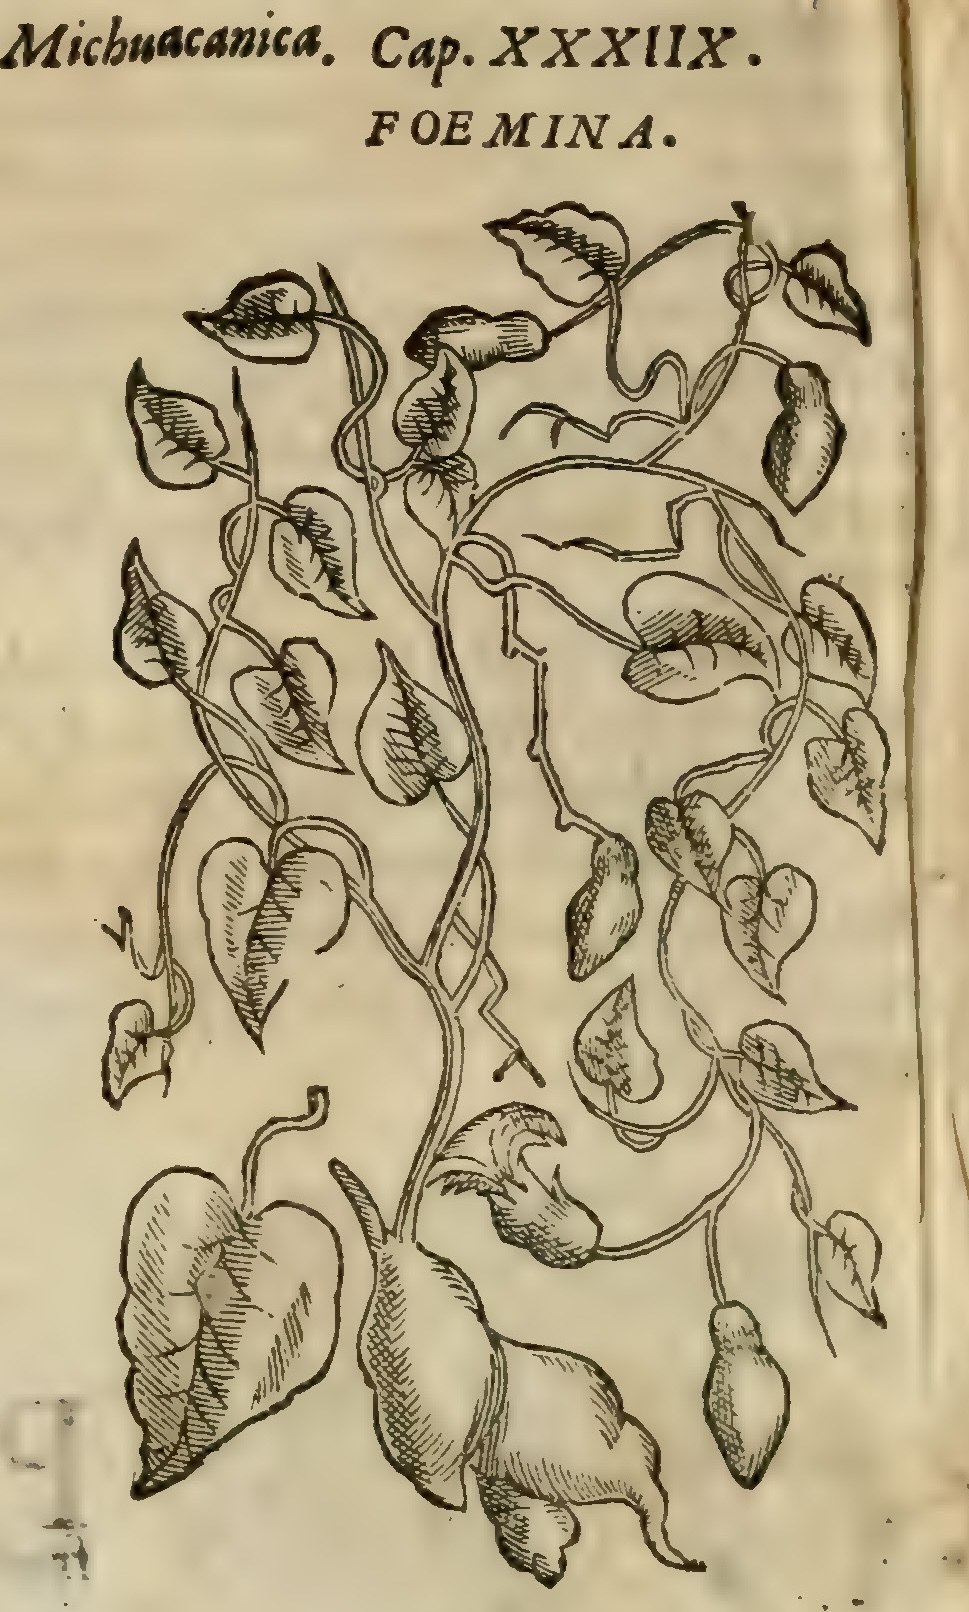 Michuacanica. Cap. XXXIIX.
FOEMINA.